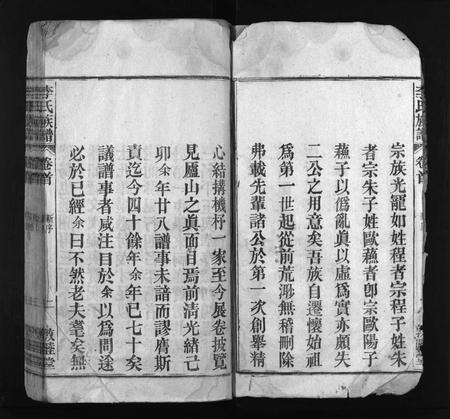 李氏族譜
卷首
宗族光寵如姓程者宗程子姓朱
者宗朱子姓歐蘓者卽宗歐陽子
蘓子以僞亂眞以虛爲實亦頗失
二公之用意矣吾族自遷懷始祖
爲第一世起從前荒渺無稽刪除
弗載先輩諸公於第一次創舉精
心結搆機杼一家至今展卷披覽
見廬山之眞面目焉前清光緒己
卯余年廿八譜事未諳而謬膺斯
責迄今四十餘年余年已七十矣
議譜事者咸注曰於余以爲問途
必於已經余曰不然老夫耄矣無
李氏族譜
卷首
新序
二
敦睦堂